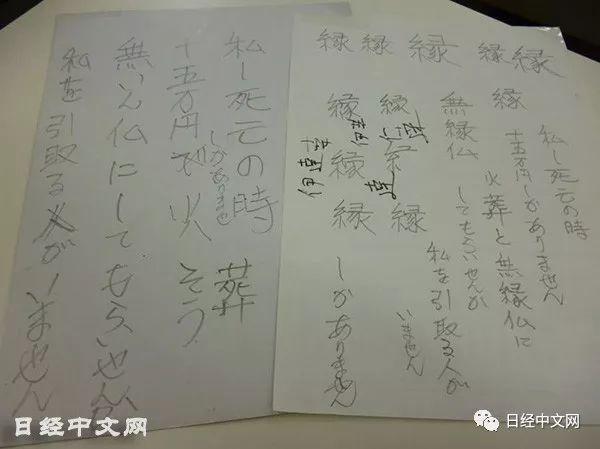 私し死元の時 葬
しかありませ
十五万円 火 そう
無いん仏にしてもらいせんか
私を引取る人がいません
縁 縁 縁 縁 縁
縁
私し死元の時
十五万円しかありません
火葬と無縁仏に
してもらいせんか
無縁仏
私を引取る人が
いません
縁
縁
縁 縁
縁
伊達
しかありません
日经中文网
日经中文网